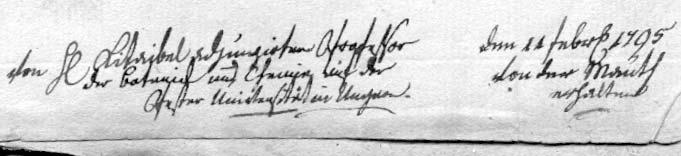 von H Kitaibel adjungirten Professor
der Botanick und Chemie, auf der
Pester Universität in Ungarn.
den 11 Febr 1795
von der Mauth
erhalten